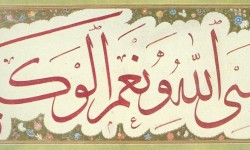 سبي الله ونعم الوك